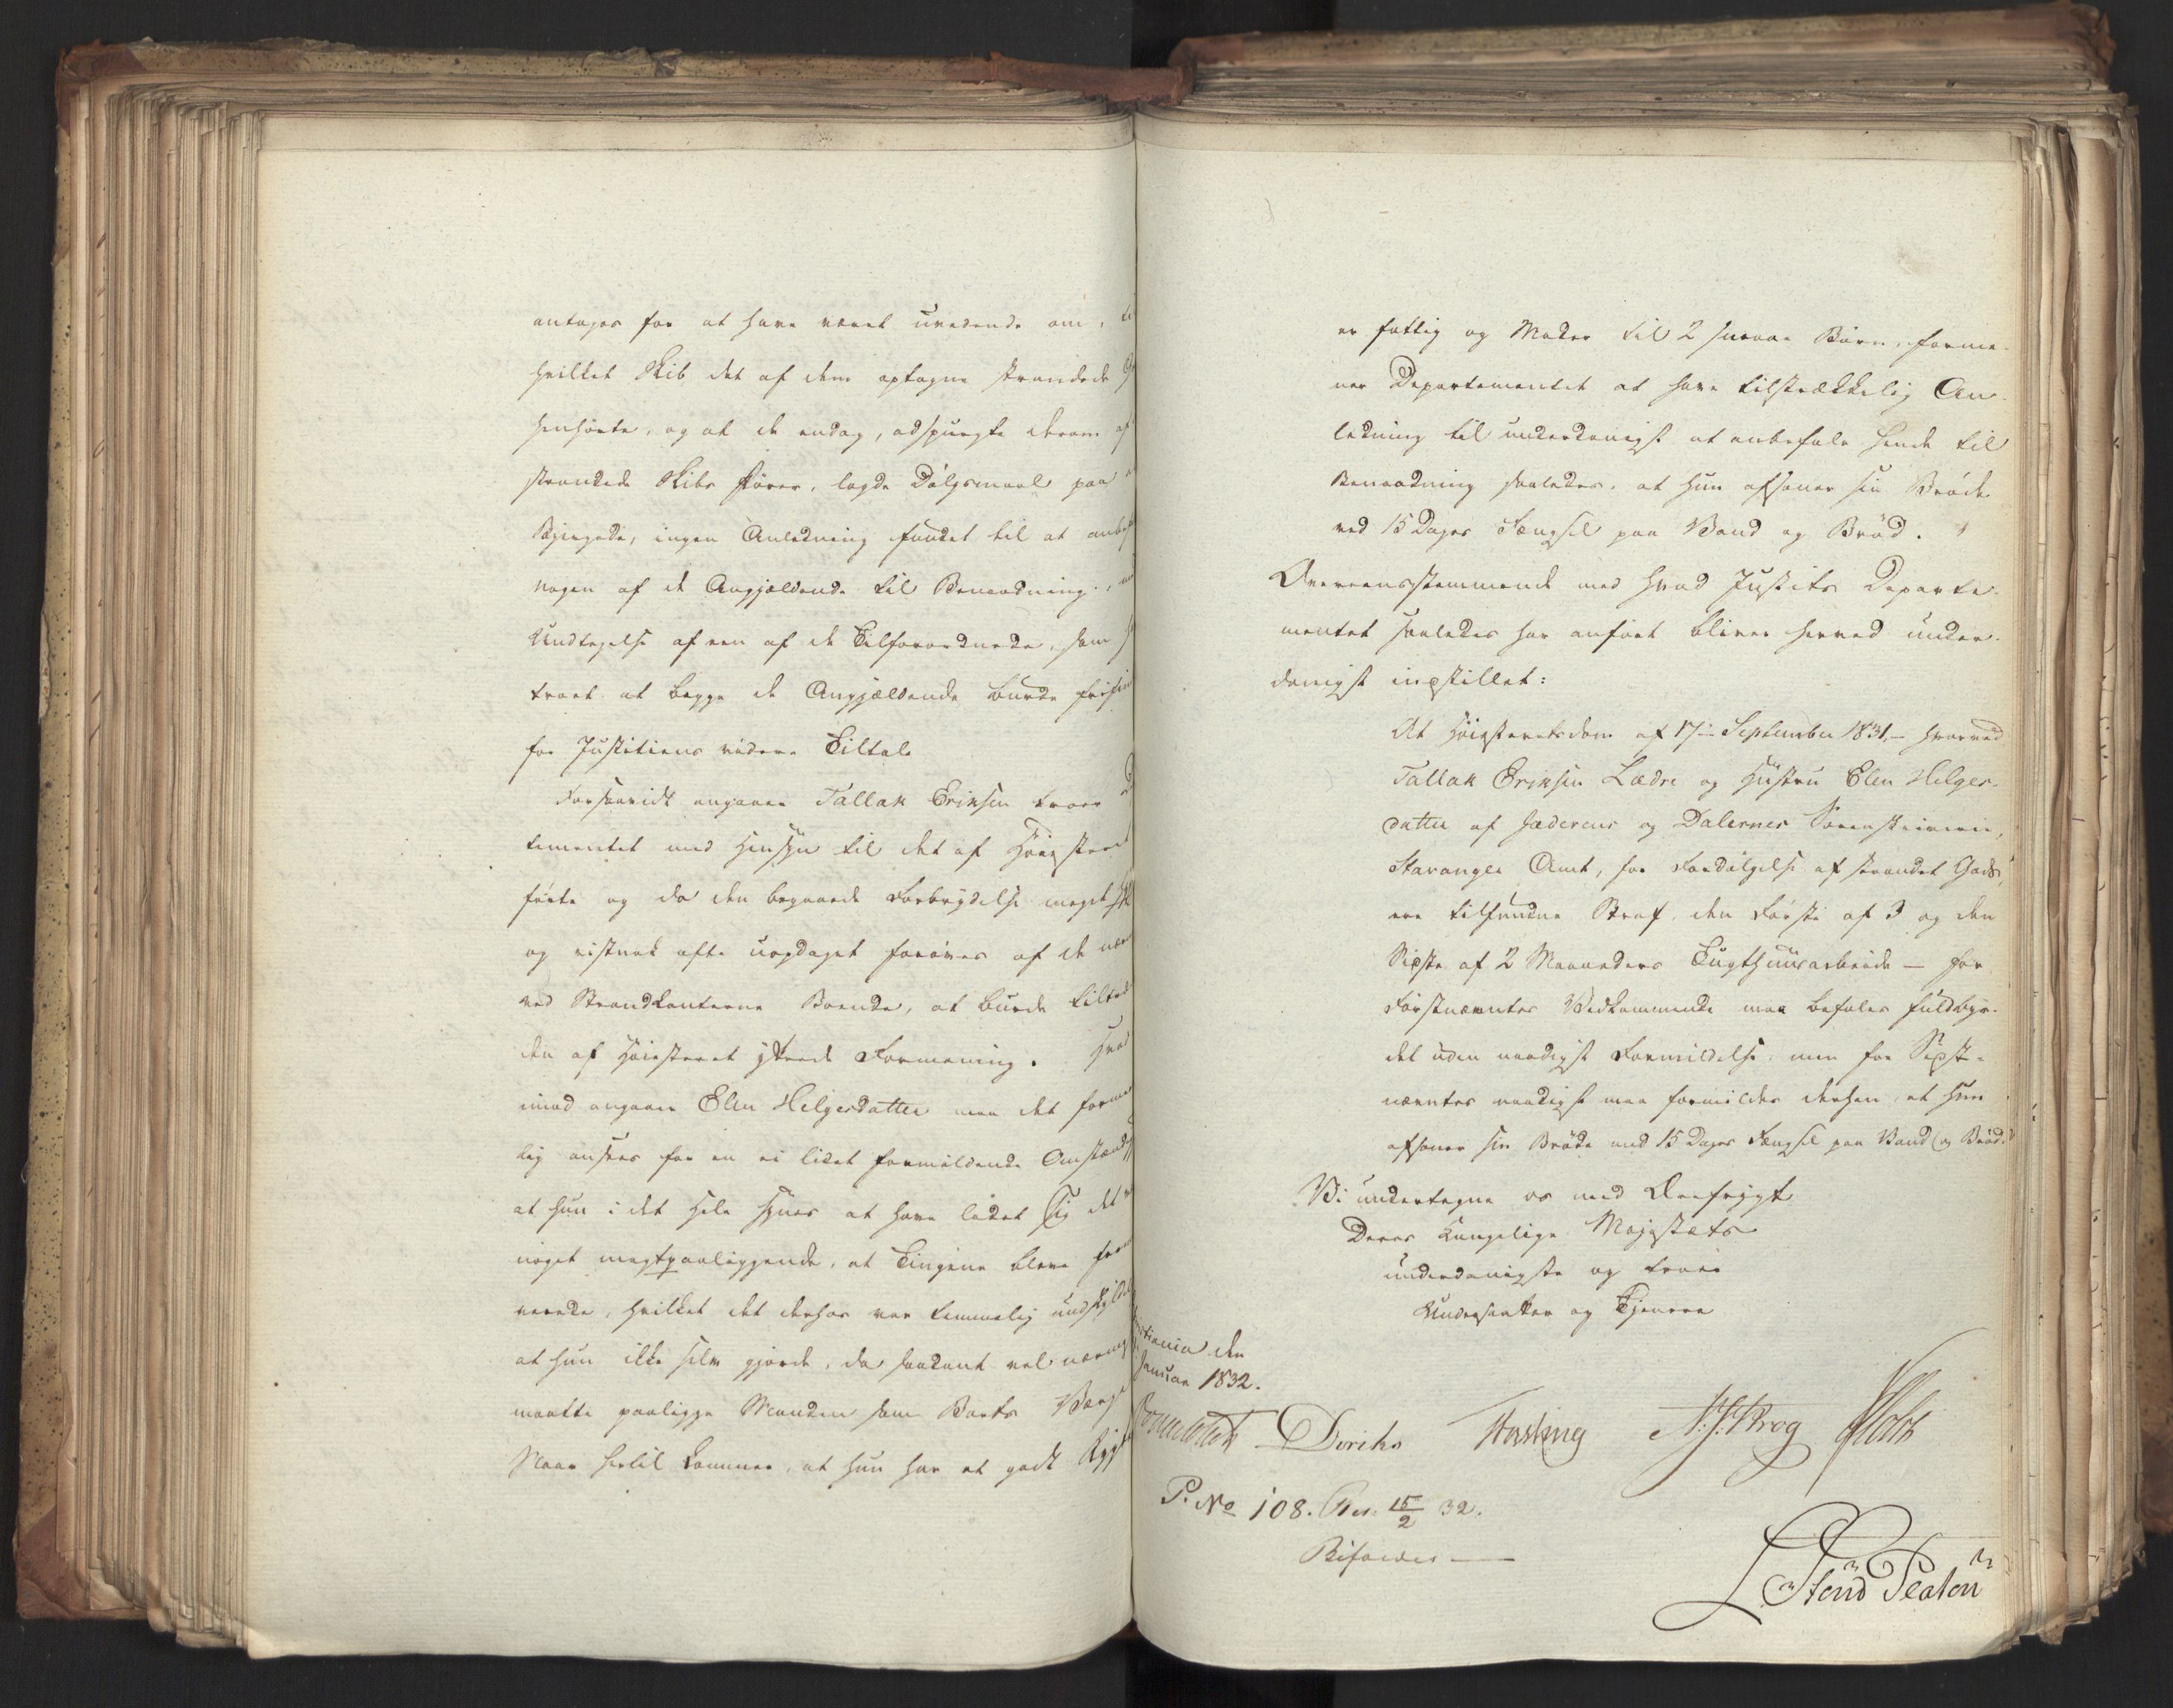 antages for at have været uvidende om, til
hvilket Skib det af dem optagne strandede
henhørte, og at de endog, adspurgte derom af
strandede Skibs Fører, lagde Dølgsmaal paa
Bjergede, ingen Anledning fundet til at anbef
nogen af de Angjældende til Benaadning, med
Undtagelse af een af de Tilforordnede, som
troet at begge de Angjældende burde frifin
for Justitiens videre Tiltale
Forsaavidt angaaer Tallak Eriksen troer
tementet med Hensyn til det af Høiesteret
førte og da den begaaede Forbrydelse meget
og vistnok ofte uopdaget forøves af de nær
ved Strandkanterne Boende, at burde tiltræ
den af Høiesteret yttrede Formening. Hvad
imod angaaer Elen Helgesdatter maa det forme
lig ansees for en ei lidet formildende Omstændig
at hun i det Hele synes at have ladet sig det
noget magtpaaliggende, at Tingene bleve frem
viste, hvilket det derhos var temmelig undskyldel
at hun ikke selv gjorde, da saadant vel nærmest
maatte paaligge Manden som Boets Værge
Naar hertil kommer, at hun har et godt Rygte
er fattig og Moder til 2 smaae Børn, forme-
ner Departementet at have tilstrækkelig An-
ledning til underdanigst at anbefale hende til
Benaadning saaledes, at hun afsoner sin Brøde
ved 15 Dages Fængsel paa Vand og Brød.
Overeensstemmende med hvad Justits Departe-
mentet saaledes har anført bliver herved under-
danigst indstillet:
At Høiesteretsdom af 17de September 1831, hvorved
Tallak Eriksen Lædre og Hustru Elen Helges-
datter af Jæderens og Dalernes Sorenskriverie,
Stavanger Amt, for Fordølgelse af strandet Gods,
ere tilfundne Straf, den Første af 3 og den
Sidste af 2 Maaneders Tugthuusarbeide – for
Førstnævntes Vedkommende maa befales fuldbyr-
det uden naadigst Formildelse, men for Sidst-
nævntes naadigst maa formildes derhen, at hun
afsoner sin Brøde med 15 Dages Fængsel paa Vand og Brød.
Vi undertegne os med Ærefrygt
Deres Kongelige Majestæts
underdanigste og troe
Undersaatter og Tjenere
istiania den
Januar 1832.
Diriks Fasting Krog Holst
P. No 108. Res. 15/2 32.
Bifaldes